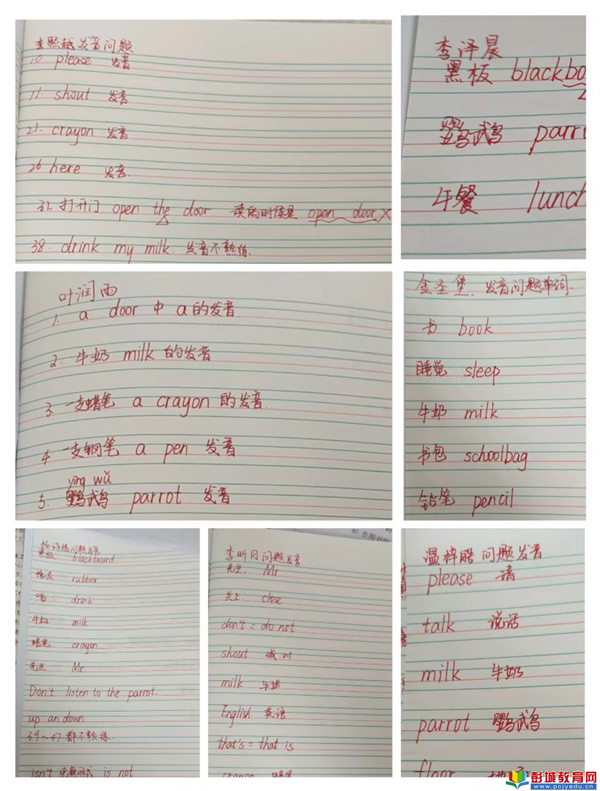 李熙越发音问题
10 please 发音
11. shout 发音
21. crayon 发音
26 here 发音
32. 打开门 open the door 读的时候是 open door ×
38. drink my milk. 发音不熟练.
李泽晨
黑板 blackbo
鹦鹉 parro
午餐 lunch
叶润雨
1. a door 中 a 的发音
2. 牛奶 milk 的发音
3. 一支蜡笔 a crayon 的发音.
4 一支钢笔 a pen 发音
yīng wǔ
5. 鹦鹉 parrot 发音
金圣堡. 发音问题单词.
书 book
睡觉 sleep
牛奶 milk
书包 schoolbag
铅笔 pencil
问题发音
黑板 blackboard
橡皮 rubber
喝 drink
牛奶 milk
蜡笔 crayon
先生 Mr
Don't listen to the parrot.
up an down
39~47 都不熟练.
isn't 完整形式 is not
李昕月问题发音
先生 Mr
关上 close
don't = do not
shout 喊叫
milk 牛奶
English 英语
that's = that is
crayon 蜡笔
温梓皓问题发音
please 请
talk 说话
milk 牛奶
parrot 鹦鹉
floor 地板
彭城教育网
www.pcjyedu.cn